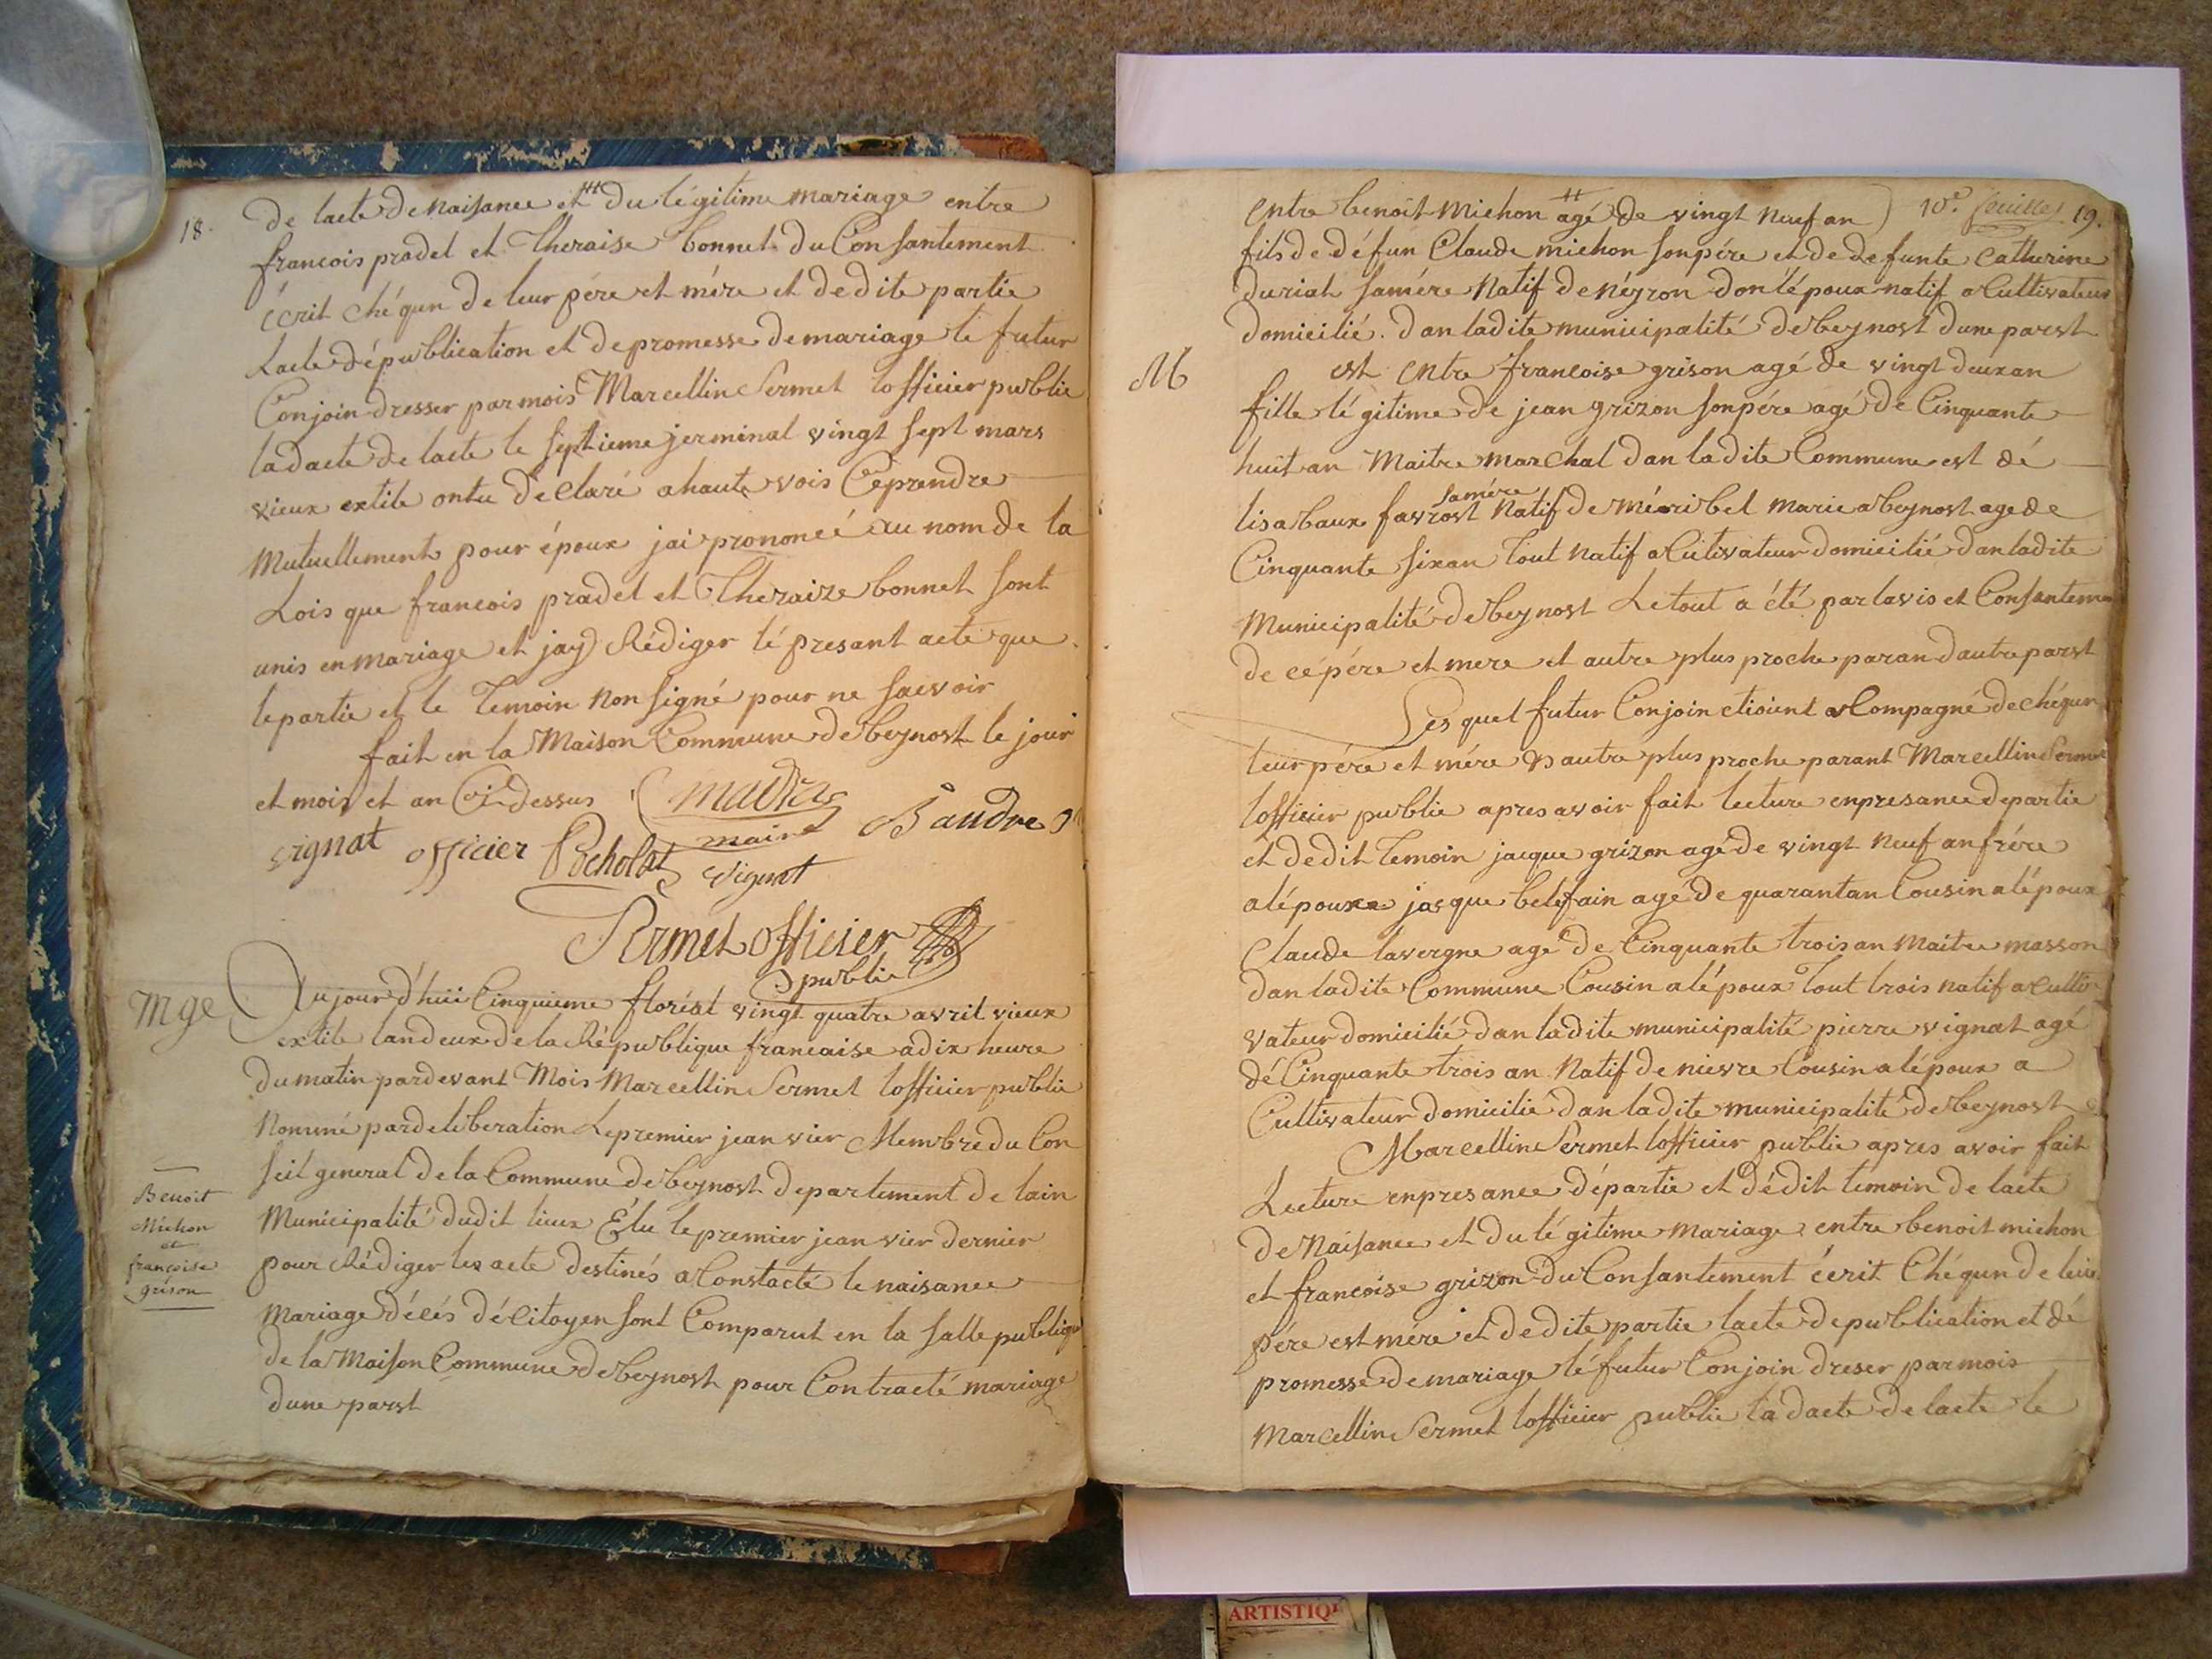 18.
de lacte de naisance et du légitime mariage entre
francois pradel et Theraise bonnet du Consantement
écrit chéqun de leur pére et mére et de dite partie
Lacte dépublication et de promesse de mariage le futur
Conjoin dresser par mois Marcellin Sermet lofficier public
la dacte de lacte le septieme jerminal vingt sept mars
vieux extile ontu déclaré a haute vois Céprendre
Mutuellement pour époux jai prononcé au nom de la
Lois que francois pradel et Theraize bonnet sont
unis en mariage et jay Rédiger lé presant acte que
le partie et le Temoin non signé pour ne saevoir
fait en la Maison Commune de beynost le jour
et mois et an Ci dessus
maire
Baudra
vignat officier Pocholat
vignat
Sermet officier
public
Mge
Aujour d'hui Cinquieme floréal vingt quatre avril vieux
extile lan deux de la République francaise a dix heure
du matin pardevant Mois Marcellin Sermet lofficier public
Nommé par deliberation Le premier jean vier Membre du Con
seil general de la Commune de beynost departement de lain
Municipalité dudit lieux Élu le premier jean vier dernier
pour Rédiger les acte destinés a Constacté le naisance
Mariage décés dé Citoyen sont Comparut en la salle publique
de la Maison Commune de beynost pour Contracté mariage
dune parst
Benoit
Michon
et
françoise
grison
10.e feuillet 19.
Entre benoit Michon agé de vingt neuf an
fils de défun Claude michon son pére et de defunte Catherine
duriat sa mére Natif de Néyron don lépoux natif a Cultivateur
domicilié dan ladite municipalité de beynost dune parst
M
est Entre francoise grison agé de vingt deux an
fille légitime de jean grizon son pére agé de Cinquante
huit an Maitre marchal dan ladite Commune est dé
lisabaux favrost sa mére Natif de méribel marie a beynost age de
Cinquante six an Tout Natif a Cutivateur domicilié dan ladite
Municipalité de beynost Le tout a été par lavis et Consantem
de cé pére et mere et autre plus proche paran dautre parst
Les quel futur Conjoin etioint a Compagné de chéqun
leur pére et mére D autre plus proche parant Marcellin Sermet
lofficier public apres avoir fait lecture enpresance de partie
et de dit Temoin jacque grizon agé de vingt neuf an frére
a lépouxe jacque belefain agé de quarantan Cousin a lépoux
Claude lavergne age de Cinquante trois an Maitre masson
dan ladite Commune Cousin a lépoux Tout trois natif a Culti
vateur domicilié dan ladite municipalité pierre vignat agé
dé Cinquante trois an Natif de nievre Cousin a lépoux a
Cultivateur domicilié dan ladite municipalité de beynost
Marcellin Sermet lofficier public apres avoir fait
Lecture enpresance départie et dédit temoin de lacte
de Naisance et du légitime Mariage entre benoit michon
et francoise grizon du Consantement écrit Chéqun de leur
pére est mére et de dite partie lacte de publication et dé
promesse de mariage lé futur Conjoin dreser par mois
Marcellin Sermet lofficier public la dacte de lacte le
ARTISTIQ